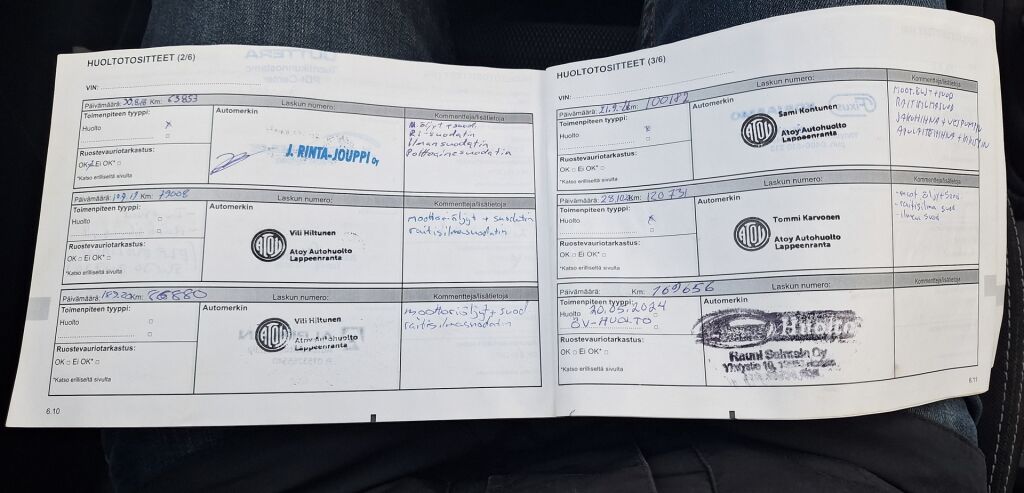 HUOLTOTOSITTEET (2/6)
VIN:
Päivämäärä: 30.8.18 Km: 63853
Laskun numero:
Toimenpiteen tyyppi:
Huolto x
Automerkin
Kommentteja/lisätietoja
M.öljyt + suod.
Ri-suodatin
Ilmansuodatin
Polttoainesuodatin
J. RINTA-JOUPPI Oy
Ruostevauriotarkastus:
OK Ei OK*
*Katso erilliseltä sivulta
Päivämäärä: Km: 79008
Laskun numero:
Toimenpiteen tyyppi:
Huolto
Automerkin
Kommentteja/lisätietoja
moottoriöljyt + suodatin
raitisilmasuodatin
ATOY
Vili Hiltunen
Atoy Autohuolto
Lappeenranta
Ruostevauriotarkastus:
OK Ei OK*
*Katso erilliseltä sivulta
Päivämäärä: Km: 86880
Laskun numero:
Toimenpiteen tyyppi:
Huolto
Automerkin
Kommentteja/lisätietoja
moottoriöljyt + suod
raitisilmasuodatin
ATOY
Vili Hiltunen
Atoy Autohuolto
Lappeenranta
Ruostevauriotarkastus:
OK Ei OK*
*Katso erilliseltä sivulta
6.10
HUOLTOTOSITTEET (3/6)
VIN:
Päivämäärä: Km: 100182
Laskun numero:
Toimenpiteen tyyppi:
Huolto x
Automerkin
Kommentteja/lisätietoja
MOOT.ÖLJYT + SUOD
RAITISILMASUOD
JAKOHIHNA + VESIPUMPUN
APULAITEHIHNA + KIRISTIN
ATOY
Sami Kontunen
Atoy Autohuolto
Lappeenranta
Ruostevauriotarkastus:
OK Ei OK*
*Katso erilliseltä sivulta
Päivämäärä: Km: 120731
Laskun numero:
Toimenpiteen tyyppi:
Huolto x
Automerkin
Kommentteja/lisätietoja
-moot.öljyt+suod.
-raitisilma suod
-ilman suod
ATOY
Tommi Karvonen
Atoy Autohuolto
Lappeenranta
Ruostevauriotarkastus:
OK Ei OK*
*Katso erilliseltä sivulta
Päivämäärä: Km: 169656
Laskun numero:
Toimenpiteen tyyppi:
Huolto 20.05.2024
ÖV-HUOLTO
Automerkin
Kommentteja/lisätietoja
Huolto
Rauni Salmein Oy
Yhtystie 10,
Ruostevauriotarkastus:
OK Ei OK*
*Katso erilliseltä sivulta
6.11